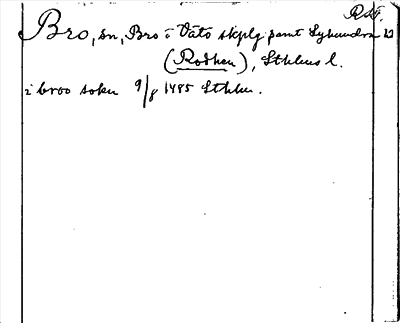 RAF.
Bro, sn, Bro o Väto skplg samt Lyhundra
(Rodhen), Sthlms l.
i broo sokn 9/8 1485 Sthlm.